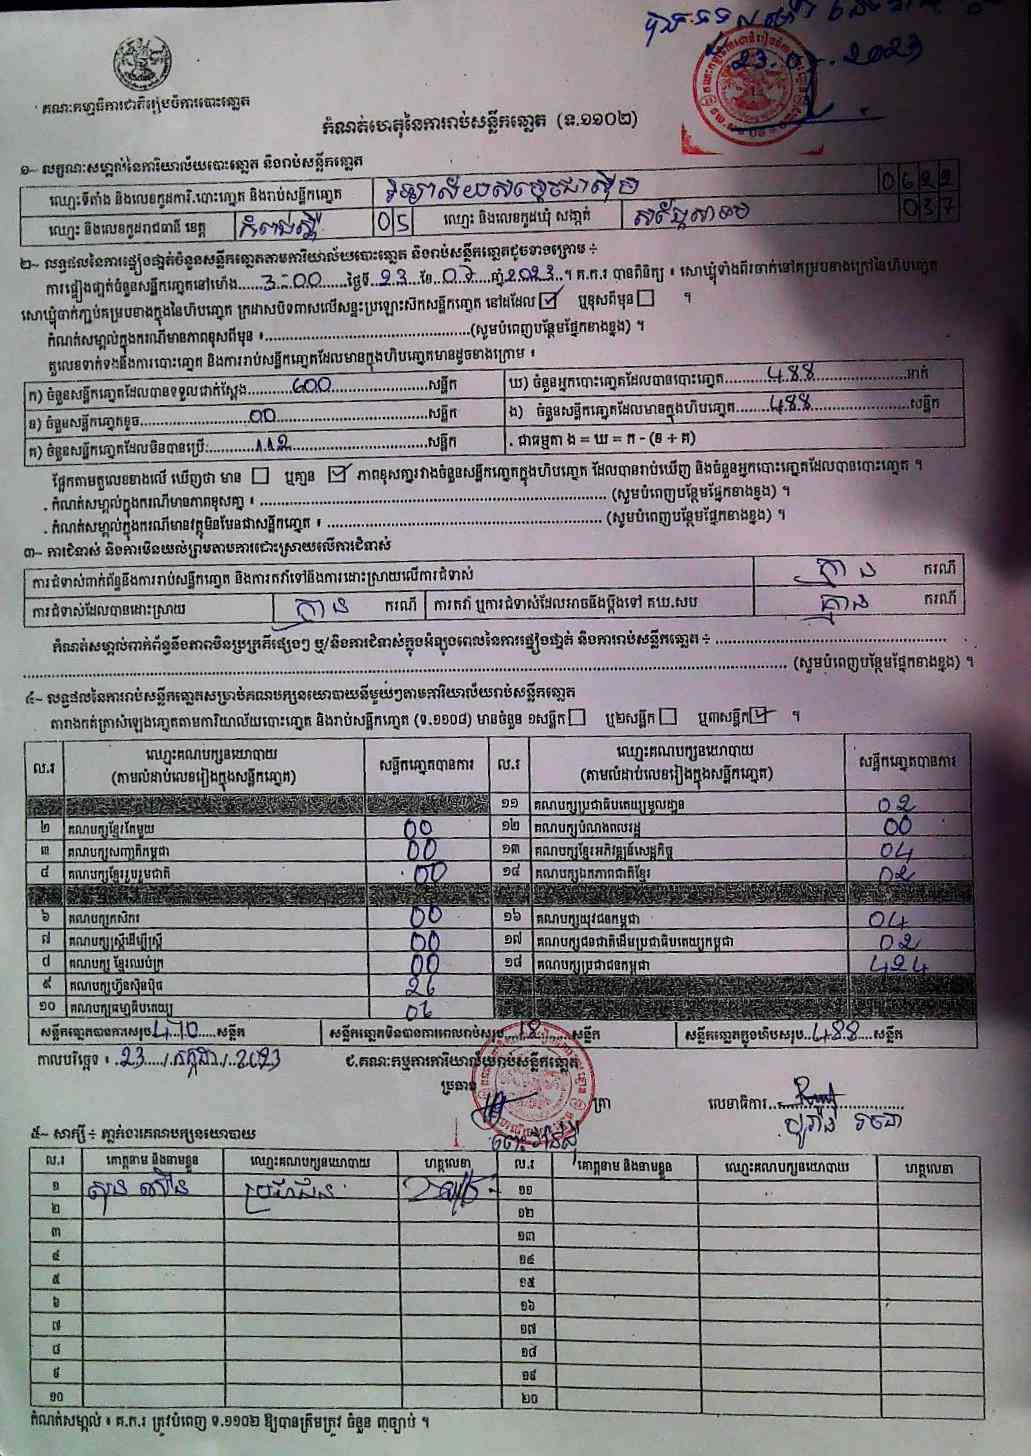 23.07.2023
គណៈកម្មាធិការជាតិរៀបចំការបោះឆ្នោត
កំណត់ហេតុនៃការរាប់សន្លឹកឆ្នោត (ទ.១១០២)
១~ លក្ខណៈសម្គាល់នៃការិយាល័យបោះឆ្នោត និងរាប់សន្លឹកឆ្នោត
ឈ្មោះទីតាំង និងលេខកូដការិ.បោះឆ្នោត និងរាប់សន្លឹកឆ្នោត 0622
ឈ្មោះ និងលេខកូដរាជធានី ខេត្ត កំពង់ស្ពឺ 05 ឈ្មោះ និងលេខកូដឃុំ សង្កាត់ 037
២~ លទ្ធផលនៃការផ្ទៀងផ្ទាត់ចំនួនសន្លឹកឆ្នោតតាមការិយាល័យបោះឆ្នោត និងរាប់សន្លឹកឆ្នោតដូចខាងក្រោម ÷
ការផ្ទៀងផ្ទាត់ចំនួនសន្លឹកឆ្នោតនៅម៉ោង 3-00 ថ្ងៃទី 23 ខែ 07 ឆ្នាំ 2023 ។ គ.ក.រ បានពិនិត្យ ៖ សោឃ្លុំទាំងពីរចាក់នៅគម្របខាងក្រៅនៃហិបឆ្នោត
សោឃ្លុំចាក់ភ្ជាប់គម្របខាងក្នុងនៃហិបឆ្នោត ក្រដាសបិទពាសលើសន្ទះប្រឡោះសឹកសន្លឹកឆ្នោត នៅដដែល ☑ ឬខុសពីមុន ☐ ។
កំណត់សម្គាល់ក្នុងករណីមានភាពខុសពីមុន ៖ (សូមបំពេញបន្ថែមផ្នែកខាងខ្នង) ។
តួលេខទាក់ទងនឹងការបោះឆ្នោត និងការរាប់សន្លឹកឆ្នោតដែលមានក្នុងហិបឆ្នោតមានដូចខាងក្រោម ៖
ក) ចំនួនសន្លឹកឆ្នោតដែលបានទទួលជាក់ស្តែង 600 សន្លឹក ឃ) ចំនួនអ្នកបោះឆ្នោតដែលបានបោះឆ្នោត 488 នាក់
ខ) ចំនួនសន្លឹកឆ្នោតខូច 00 សន្លឹក ង) ចំនួនសន្លឹកឆ្នោតដែលមានក្នុងហិបឆ្នោត 488 សន្លឹក
គ) ចំនួនសន្លឹកឆ្នោតដែលមិនបានប្រើ 112 សន្លឹក . ជាធម្មតា ង = ឃ = ក - (ខ + គ)
ផ្អែកតាមតួលេខខាងលើ ឃើញថា មាន ☐ ឬគ្មាន ☑ ភាពខុសគ្នារវាងចំនួនសន្លឹកឆ្នោតក្នុងហិបឆ្នោត ដែលបានរាប់ឃើញ និងចំនួនអ្នកបោះឆ្នោតដែលបានបោះឆ្នោត ។
. កំណត់សម្គាល់ក្នុងករណីមានភាពខុសគ្នា ៖ (សូមបំពេញបន្ថែមផ្នែកខាងខ្នង) ។
. កំណត់សម្គាល់ក្នុងករណីមានវត្ថុមិនមែនជាសន្លឹកឆ្នោត ៖ (សូមបំពេញបន្ថែមផ្នែកខាងខ្នង) ។
៣~ ការជំទាស់ និងការមិនយល់ព្រមតាមការដោះស្រាយលើការជំទាស់
ការជំទាស់ពាក់ព័ន្ធនឹងការរាប់សន្លឹកឆ្នោត និងការតវ៉ាទៅនឹងការដោះស្រាយលើការជំទាស់ គ្មាន ករណី
ការជំទាស់ដែលបានដោះស្រាយ គ្មាន ករណី ការតវ៉ា ឬការជំទាស់ដែលអាចនឹងប្តឹងទៅ គឃ.សប គ្មាន ករណី
កំណត់សម្គាល់ពាក់ព័ន្ធនឹងភាពមិនប្រក្រតីផ្សេងៗ ឬ/និងការជំទាស់ក្នុងអំឡុងពេលនៃការផ្ទៀងផ្ទាត់ និងការរាប់សន្លឹកឆ្នោត ÷
(សូមបំពេញបន្ថែមផ្នែកខាងខ្នង) ។
៤~ លទ្ធផលនៃការរាប់សន្លឹកឆ្នោតសម្រាប់គណបក្សនយោបាយនីមួយៗតាមការិយាល័យរាប់សន្លឹកឆ្នោត
តារាងកត់ត្រាសំឡេងឆ្នោតតាមការិយាល័យបោះឆ្នោត និងរាប់សន្លឹកឆ្នោត (ទ.១១០៨) មានចំនួន ១សន្លឹក ☐ ឬ២សន្លឹក ☐ ឬ៣សន្លឹក ☑ ។
ល.រ ឈ្មោះគណបក្សនយោបាយ (តាមលំដាប់លេខរៀងក្នុងសន្លឹកឆ្នោត) សន្លឹកឆ្នោតបានការ ល.រ ឈ្មោះគណបក្សនយោបាយ (តាមលំដាប់លេខរៀងក្នុងសន្លឹកឆ្នោត) សន្លឹកឆ្នោតបានការ
១១ គណបក្សប្រជាធិបតេយ្យមូលដ្ឋាន 02
២ គណបក្សខ្មែរតែមួយ 00 ១២ គណបក្សបំណងពលរដ្ឋ 00
៣ គណបក្សសញ្ជាតិកម្ពុជា 00 ១៣ គណបក្សខ្មែរអភិវឌ្ឍន៍សេដ្ឋកិច្ច 04
៤ គណបក្សខ្មែររួបរួមជាតិ 00 ១៤ គណបក្សឯកភាពជាតិខ្មែរ 02
៦ គណបក្សកសិករ 00 ១៦ គណបក្សយុវជនកម្ពុជា 04
៧ គណបក្សស្ត្រីដើម្បីស្ត្រី 00 ១៧ គណបក្សជនជាតិដើមប្រជាធិបតេយ្យកម្ពុជា 02
៨ គណបក្ស ខ្មែរឈប់ក្រ 00 ១៨ គណបក្សប្រជាជនកម្ពុជា 424
៩ គណបក្សហ៊្វុនស៊ិនប៉ិច 26
១០ គណបក្សធម្មាធិបតេយ្យ 06
សន្លឹកឆ្នោតបានការសរុប 470 សន្លឹក សន្លឹកឆ្នោតមិនបានការពេលរាប់សរុប 18 សន្លឹក សន្លឹកឆ្នោតក្នុងហិបសរុប 488 សន្លឹក
កាលបរិច្ឆេទ ៖ 23 / កក្កដា / 2023 ជ.គណៈកម្មការការិយាល័យរាប់សន្លឹកឆ្នោត
ប្រធាន ត្រា លេខាធិការ
៥~ សាក្សី ÷ ភ្នាក់ងារគណបក្សនយោបាយ
ល.រ គោត្តនាម និងនាមខ្លួន ឈ្មោះគណបក្សនយោបាយ ហត្ថលេខា ល.រ គោត្តនាម និងនាមខ្លួន ឈ្មោះគណបក្សនយោបាយ ហត្ថលេខា
១ ប្រជាជន ១១
២ ១២
៣ ១៣
៤ ១៤
៥ ១៥
៦ ១៦
៧ ១៧
៨ ១៨
៩ ១៩
១០ ២០
កំណត់សម្គាល់ ៖ គ.ក.រ ត្រូវបំពេញ ទ.១១០២ ឱ្យបានត្រឹមត្រូវ ចំនួន ៣ច្បាប់ ។